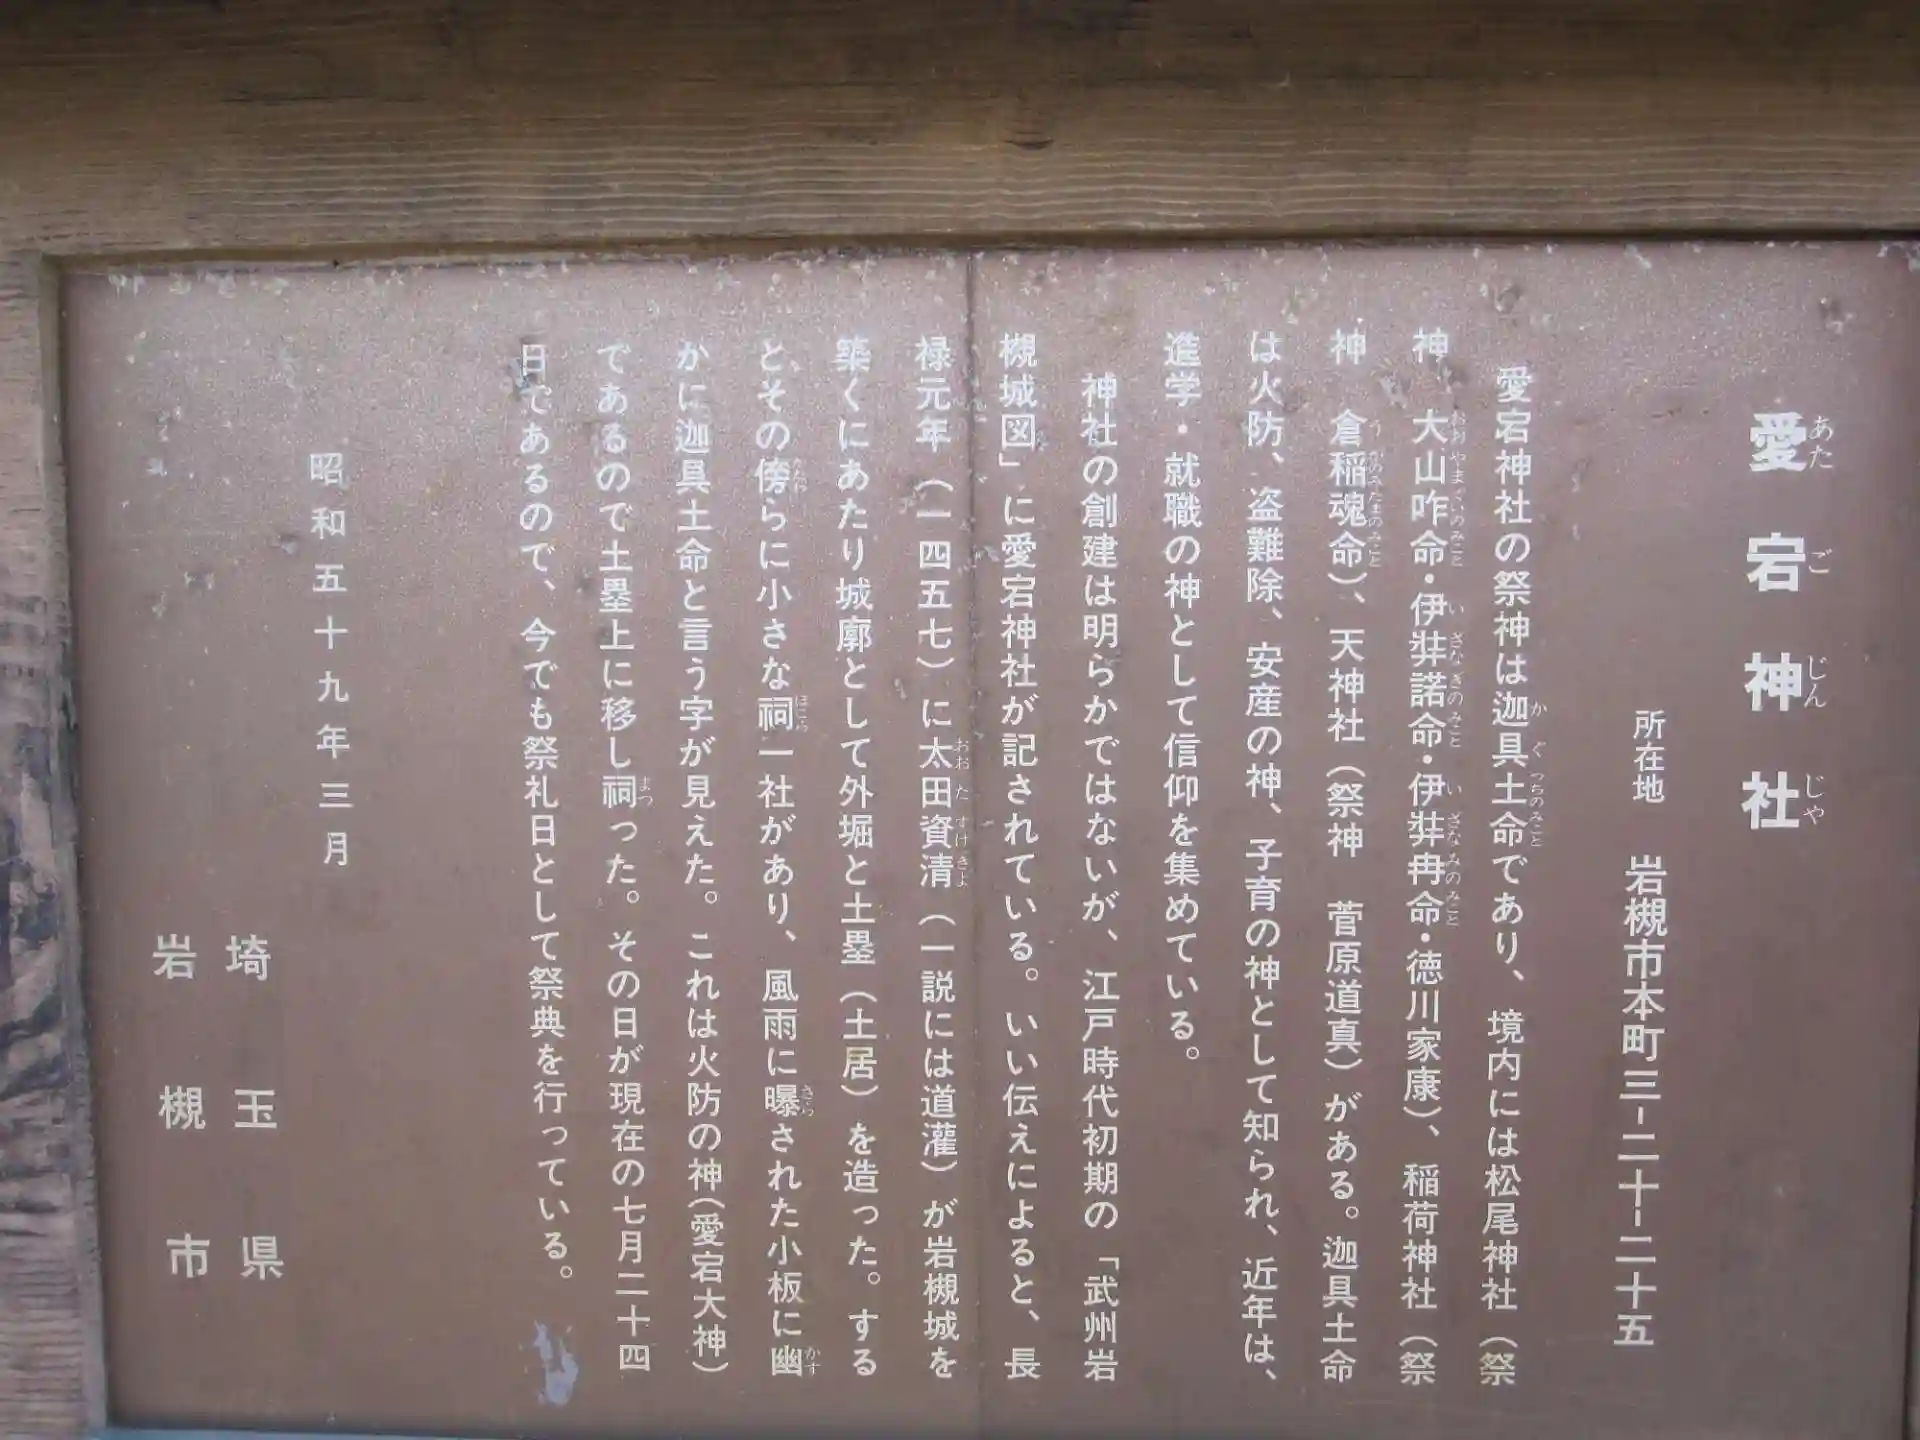 愛宕神社
所在地　岩槻市本町三-二十-二十五
愛宕神社の祭神は迦具土命であり、境内には松尾神社（祭
神　大山咋命・伊弉諾命・伊弉冉命・徳川家康）、稲荷神社（祭
神　倉稲魂命）、天神社（祭神　菅原道真）がある。迦具土命
は火防、盗難除、安産の神、子育の神として知られ、近年は、
進学・就職の神として信仰を集めている。
神社の創建は明らかではないが、江戸時代初期の「武州岩
槻城図」に愛宕神社が記されている。いい伝えによると、長
禄元年（一四五七）に太田資清（一説には道灌）が岩槻城を
築くにあたり城廓として外堀と土塁（土居）を造った。する
と、その傍らに小さな祠一社があり、風雨に曝された小板に幽
かに迦具土命と言う字が見えた。これは火防の神（愛宕大神）
であるので土塁上に移し祠った。その日が現在の七月二十四
日であるので、今でも祭礼日として祭典を行っている。
昭和五十九年三月
埼玉県
岩槻市